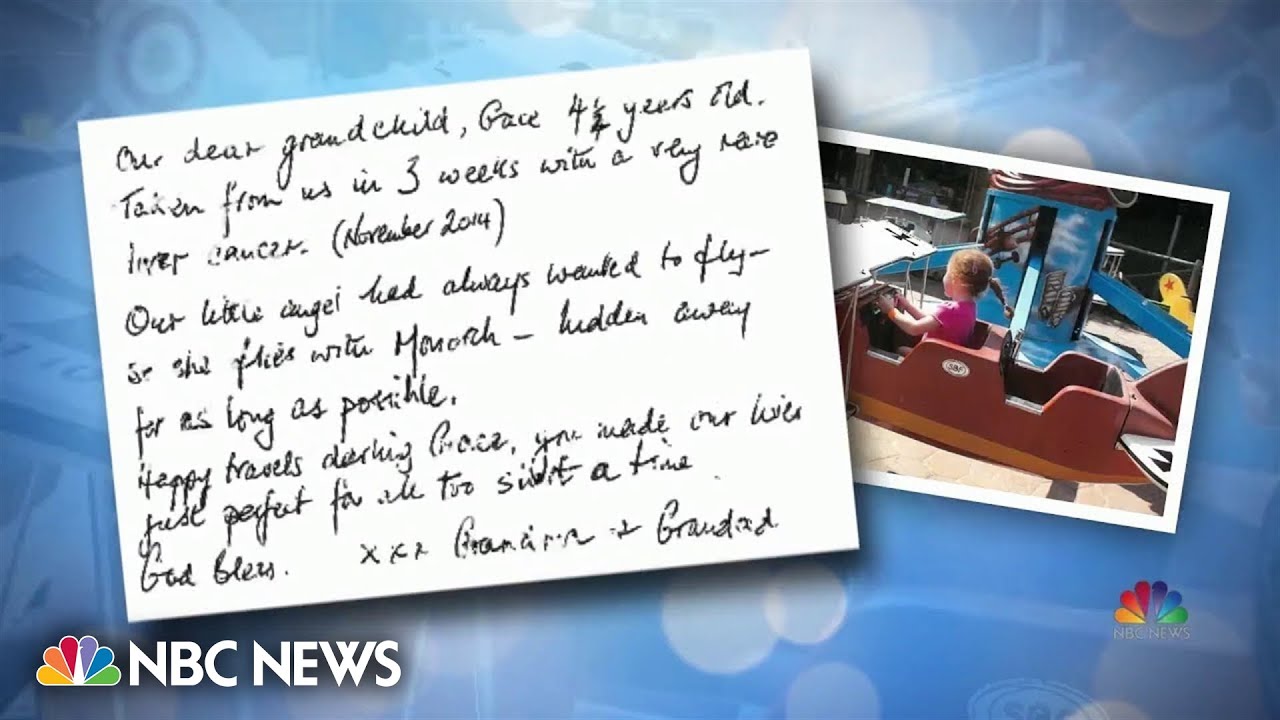 Our dear grandchild, Grace 4¼ years old.
Taken from us in 3 weeks with a very rare
liver cancer. (November 2014)
Our little angel had always wanted to fly—
so she flies with Monarch — hidden away
for as long as possible.
Happy travels darling Grace, you made our lives
just perfect for all too short a time.
God Bless. xxx + Grandad
SBF
NBC NEWS
NBC NEWS